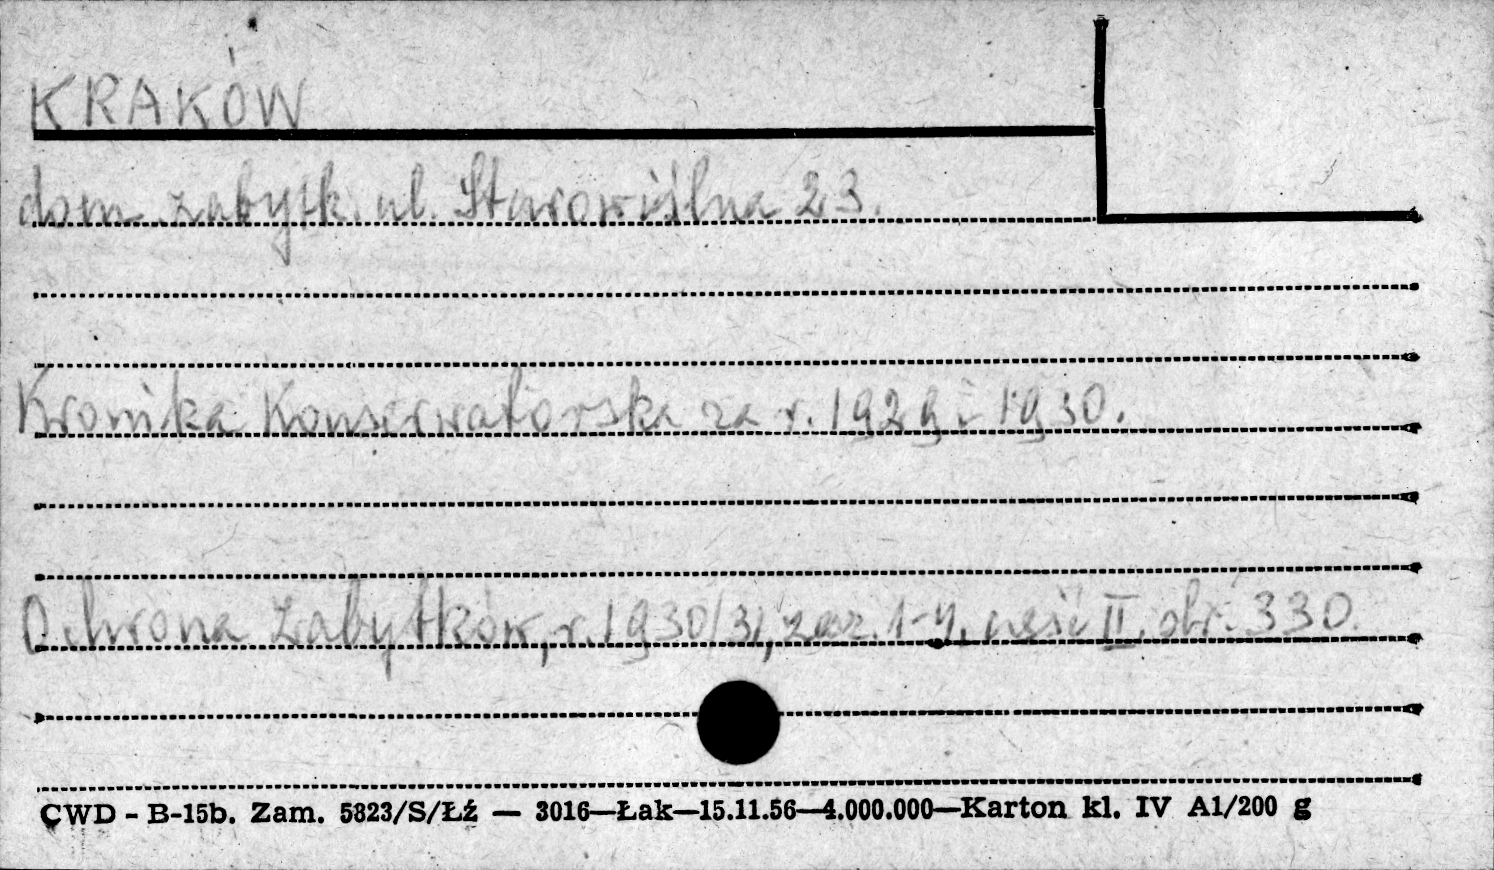 KRAKÓW
dom zabytk. ul. Starowiślna 23.
Kronika Konserwatorska za r. 1929 i 1930.
Ochrona Zabytków, r. 1930/31, zesz. 1-4, część II, str. 330.
CWD - B-15b. Zam. 5823/S/Łź — 3016—Łak—15.11.56—4.000.000—Karton kl. IV A1/200 g